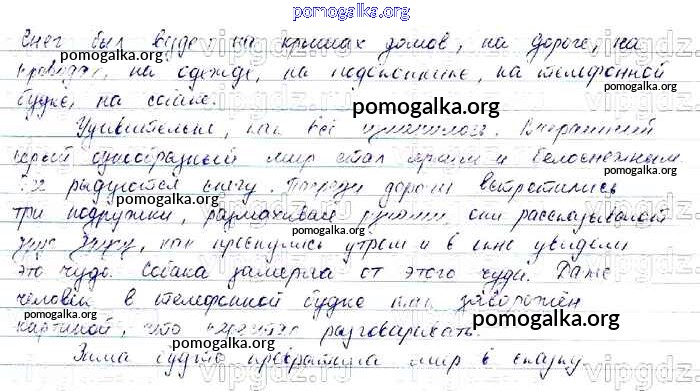 pomogalka.org
Снег был везде, на крышах домов, на дороге, на
проводах, на одежде, на подоконнике, на телефонной
будке, на собаке.
pomogalka.org
Удивительно, как всё изменилось. Вчерашний
серый однообразный мир стал ярким и белоснежным.
Все радуются снегу. дороги встретились
три подружки, размахивая руками, они рассказывают
друг другу, как проснулись утром и в окне увидели
это чудо. Собака замерла от этого чуда. Даже
человек в телефонной будке так заворожён
картиной, что перестал разговаривать.
Зима будто превратила мир в сказку.
pomogalka.org
pomogalka.org
pomogalka.org
pomogalka.org
pomogalka.org
pomogalka.org
vipgdz.ru